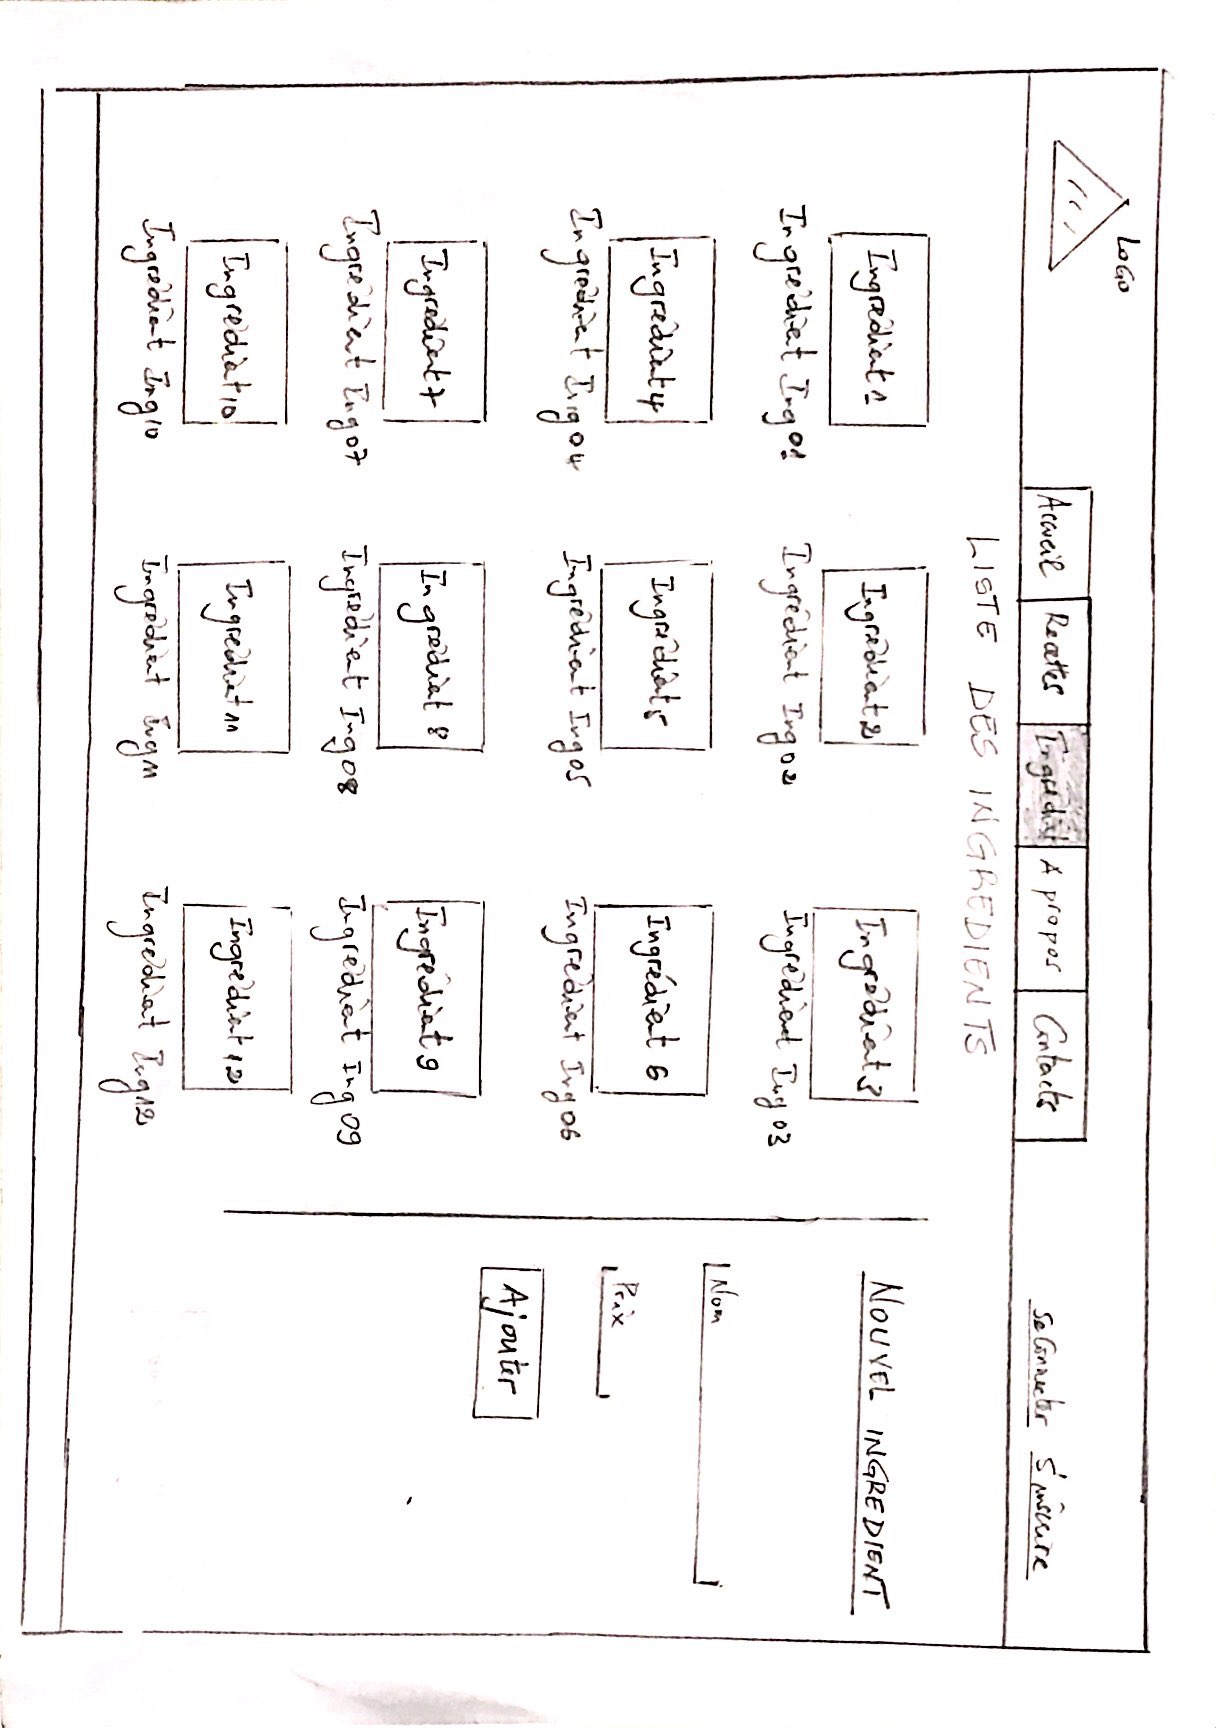 LOGO
Accueil Recettes Ingrédiat A propos Contacts
Se Connecter S'inscrire
LISTE DES INGREDIENTS
Ingrédient 1 Ingrédient 2 Ingrédient 3
Ingrédient Ing 01 Ingrédient Ing 02 Ingrédient Ing 03
Ingrédient 4 Ingrédient 5 Ingrédiat 6
Ingrédient Ing 04 Ingrédient Ing 05 Ingrédient Ing 06
Ingrédient 7 Ingrédiat 8 Ingrédiat 9
Ingrédient Ing 07 Ingrédient Ing 08 Ingrédiat Ing 09
Ingrédiat 10 Ingrédiet 11 Ingrédiat 12
Ingrédiat Ing 10 Ingrédient Ing 11 Ingrédiat Ing 12
NOUVEL INGREDIENT
Nom
Prix
Ajouter